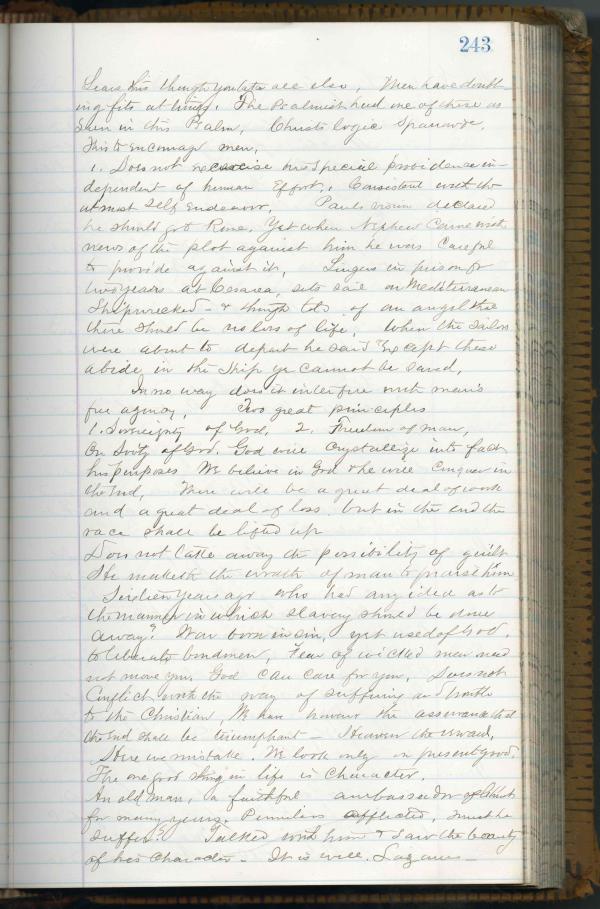 243
Learn this though you take all else. Men have doubt-
ing fits at times. The Psalmist had one of these as
seen in this Psalm. Christs logic Sparrows.
This to encourage men.
1. Does not exercise his special providence in-
dependent of human effort. Consistent with the
utmost self endeavor. Pauls vision declared
he should go to Rome. Yet when Nephew came with
news of the plot against him he was careful
to provide against it. Lingers in prison for
two years at Cesarea, sets sail on Mediterranean
Shipwrecked - & though told of an angel that
there should be no loss of life. When the sailors
were about to depart he said "Except these
abide in the ship ye cannot be saved.
In no way does it interfere with man's
free agency. Two great principles
1. Sovereignty of God. 2. Freedom of man.
On Sovty of God. God will crystallize into fact
his purposes We believe in God & he will conquer in
the end. There will be a great deal of work
and a great deal of loss but in the end the
race shall be lifted up
Does not take away the possibility of guilt
He maketh the wrath of man to praise him
Sixteen years ago who had any idea as to
the manner in which slavery should be done
away? War born in sin, yet used of God.
to liberate bondmen. Fear of wicked men need
not move you. God can care for you. Does not
Conflict with the way of suffering and
to the Christian. We have however the assurance that
the end shall be triumphant - Heaven the reward.
Here we mistake. We look only on present good.
The one good thing in life is Character.
An old man, a faithful ambassador of Christ
for many years. Penniless afflicted, must he
suffer? Talked with him & saw the beauty
of his Character - It is well. Lazarus -